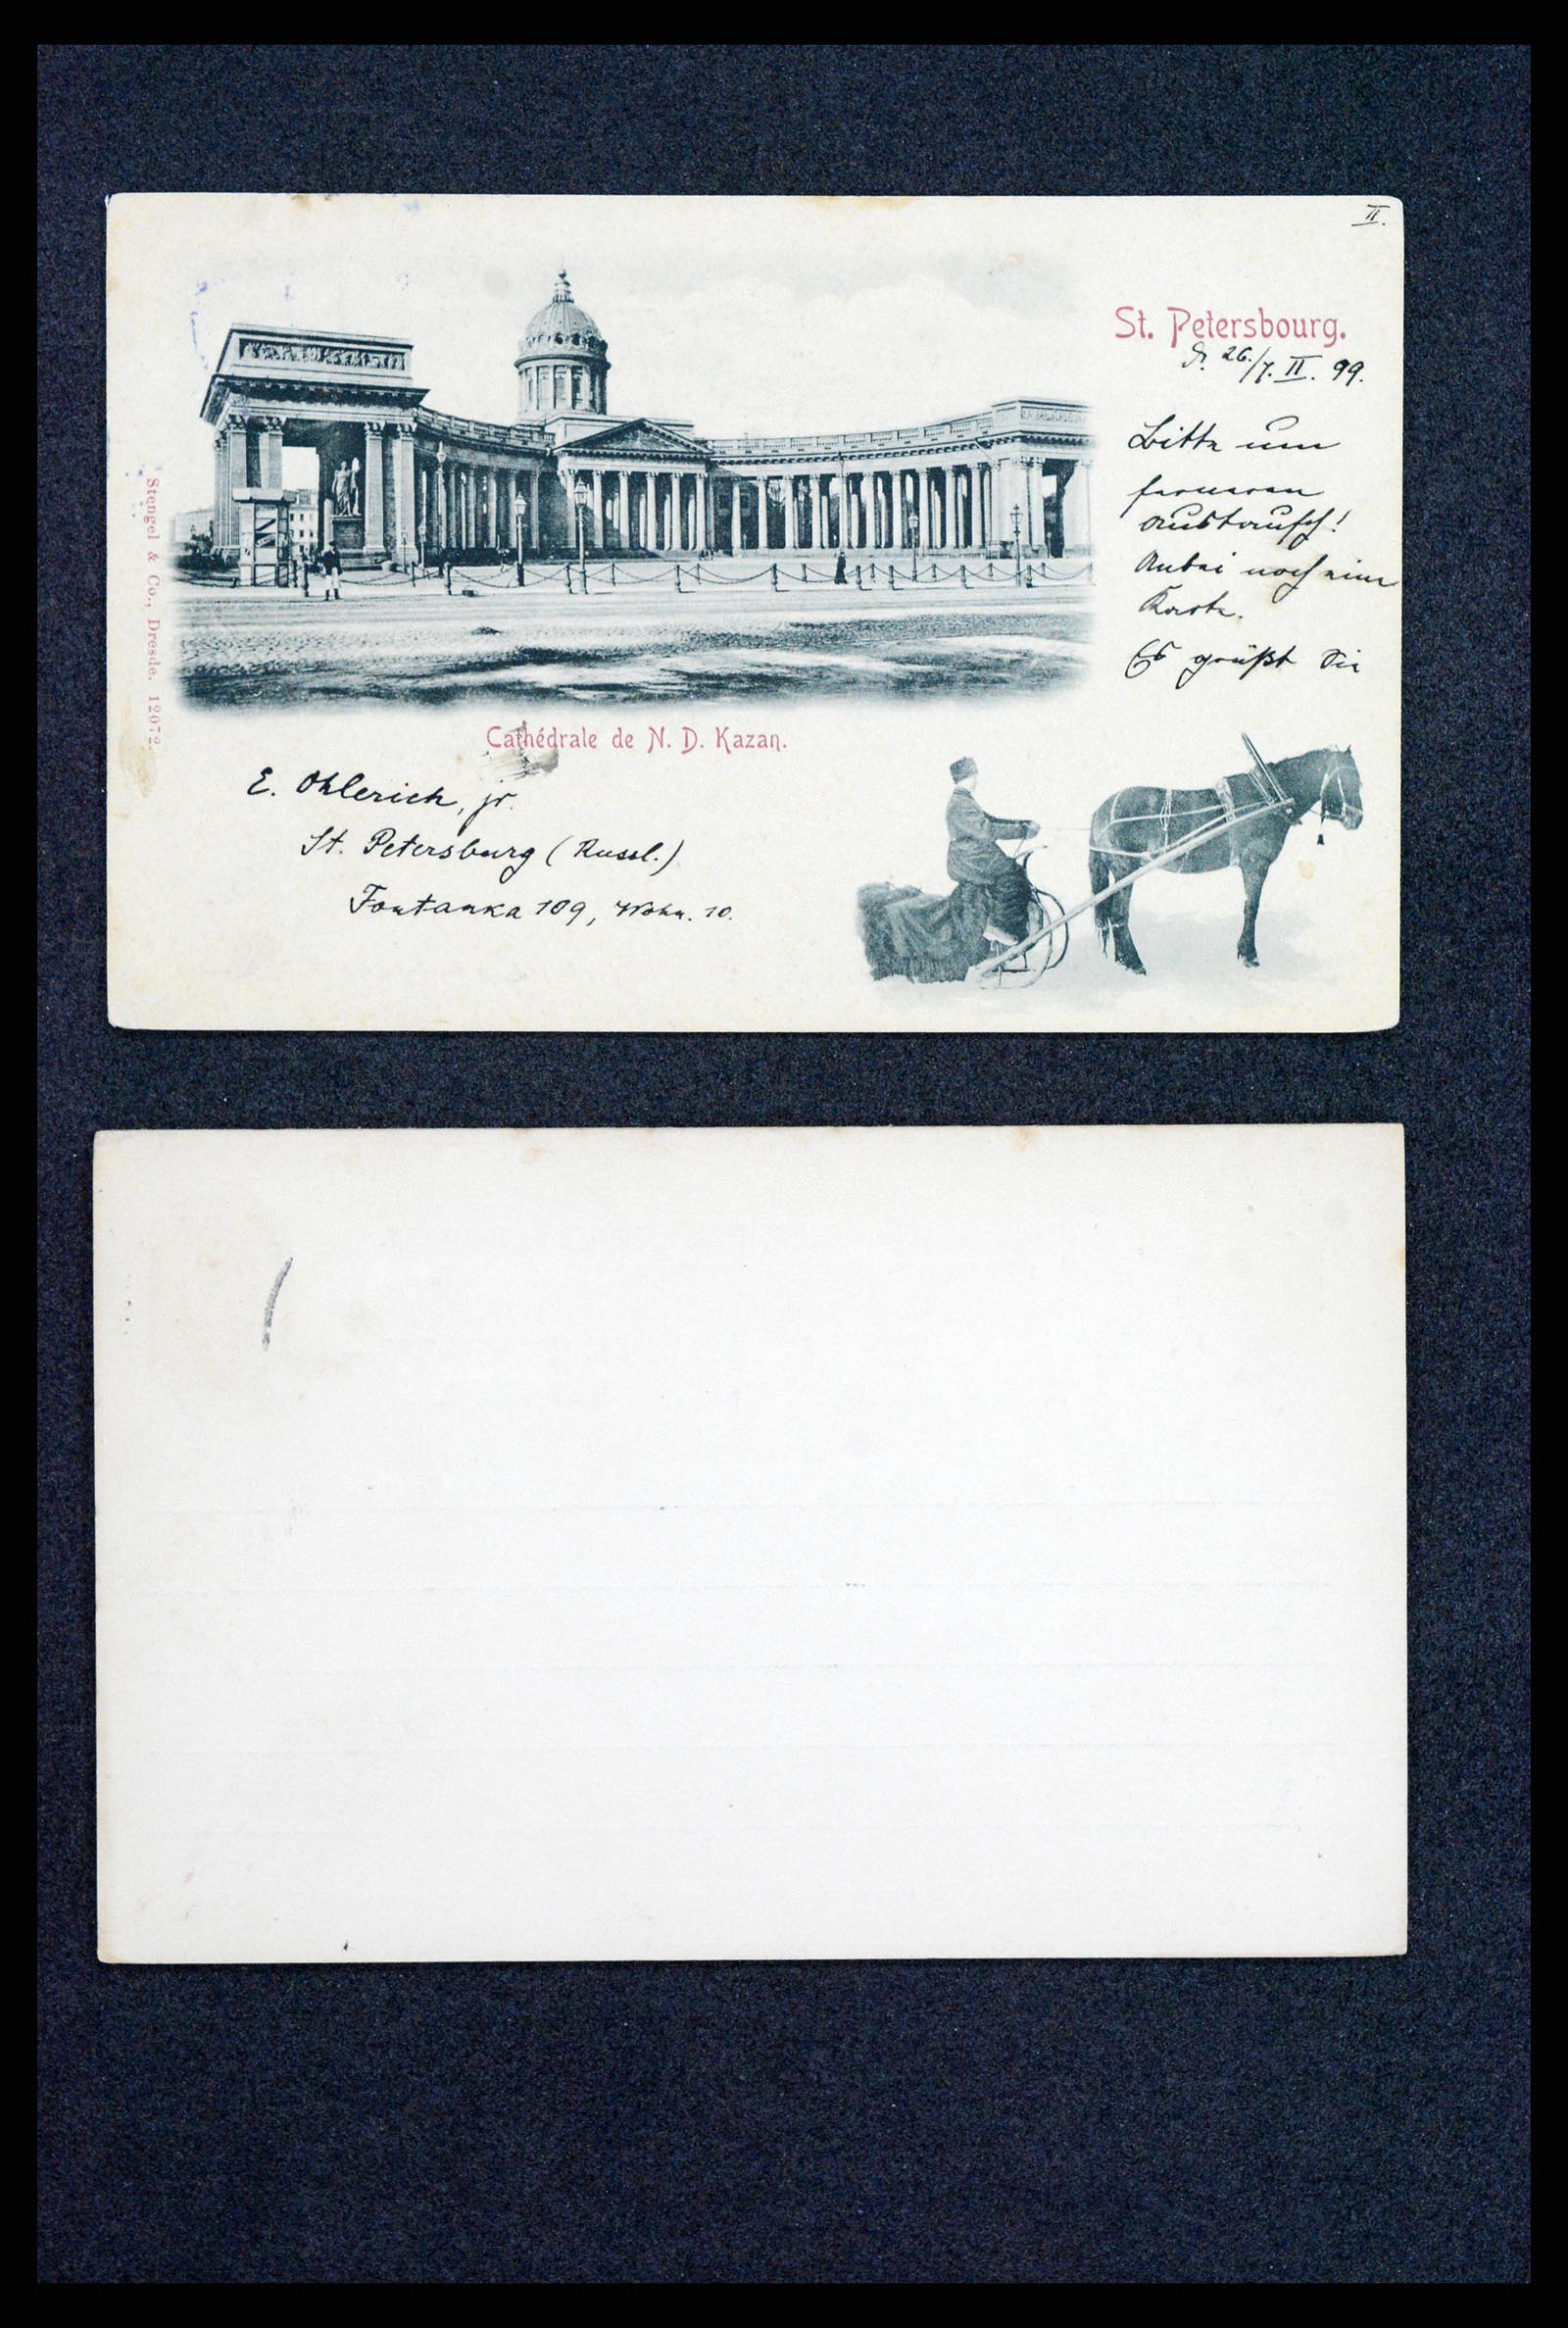 II.
St. Petersbourg.
d. 26./7. II. 99.
Bitte um
ferneren
Austausch!
Anbei noch eine
Karte.
Es grüßt Sie
Stengel & Co., Dresde. 12072.
Cathédrale de N. D. Kazan.
E. Ohlerich, jr.
St. Petersburg (Russl.)
Fontanka 109, Wohn. 10.